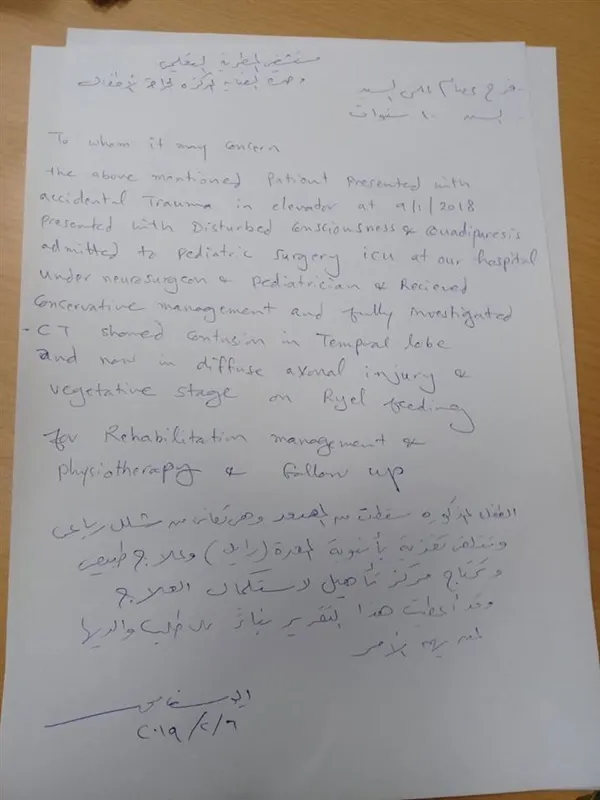 مستشفى المطرية التعليمى
وحدة العناية المركزة لجراحة الأطفال
السن ١٠ سنوات
To whom it may concern
the above mentioned Patient Presented with
accidental Trauma in elevator at 9/1/2018
Presented with Disturbed Consciousness & Quadiparesis
admitted to pediatric surgery icu at our hospital
under neurosurgeon & pediatrician & Recieved
Conservative management and fully investigated
- CT showed Contusion in Temporal lobe
and now in diffuse axonal injury &
vegetative stage on Ryel feeding
for Rehabilitation management &
physiotherapy & follow up
الطفلة المذكورة سقطت من المصعد وهى تعانى من شلل رباعى
وتتلقى تغذية بأنبوبة المعدة (رايل) وعلاج طبيعى
وتحتاج مركز تأهيل لاستكمال العلاج
وقد أعطيت هذا التقرير بناءً على طلب والديها
لمن يهمه الأمر
٢٠١٩/٢/٦